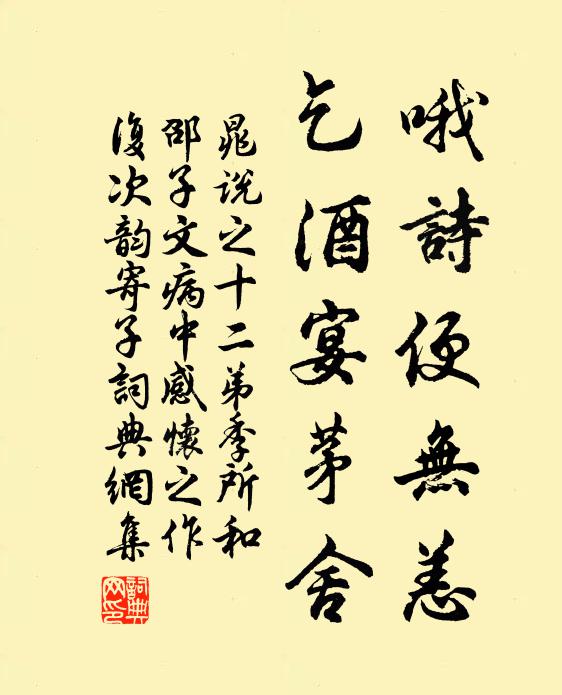 哦詩便無恙
乞酒宴茅舍
晁說之十二弟季所和
邵子文病中感懷之作
復次韵寄子詞典網集
詞典網印